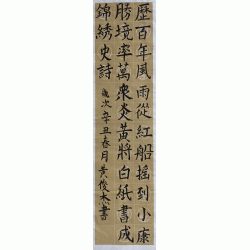 歷百年風雨從紅船搖到小康
勝境率萬衆炎黃將白紙書成
錦綉史詩
歲次辛丑春月黃俊杰書